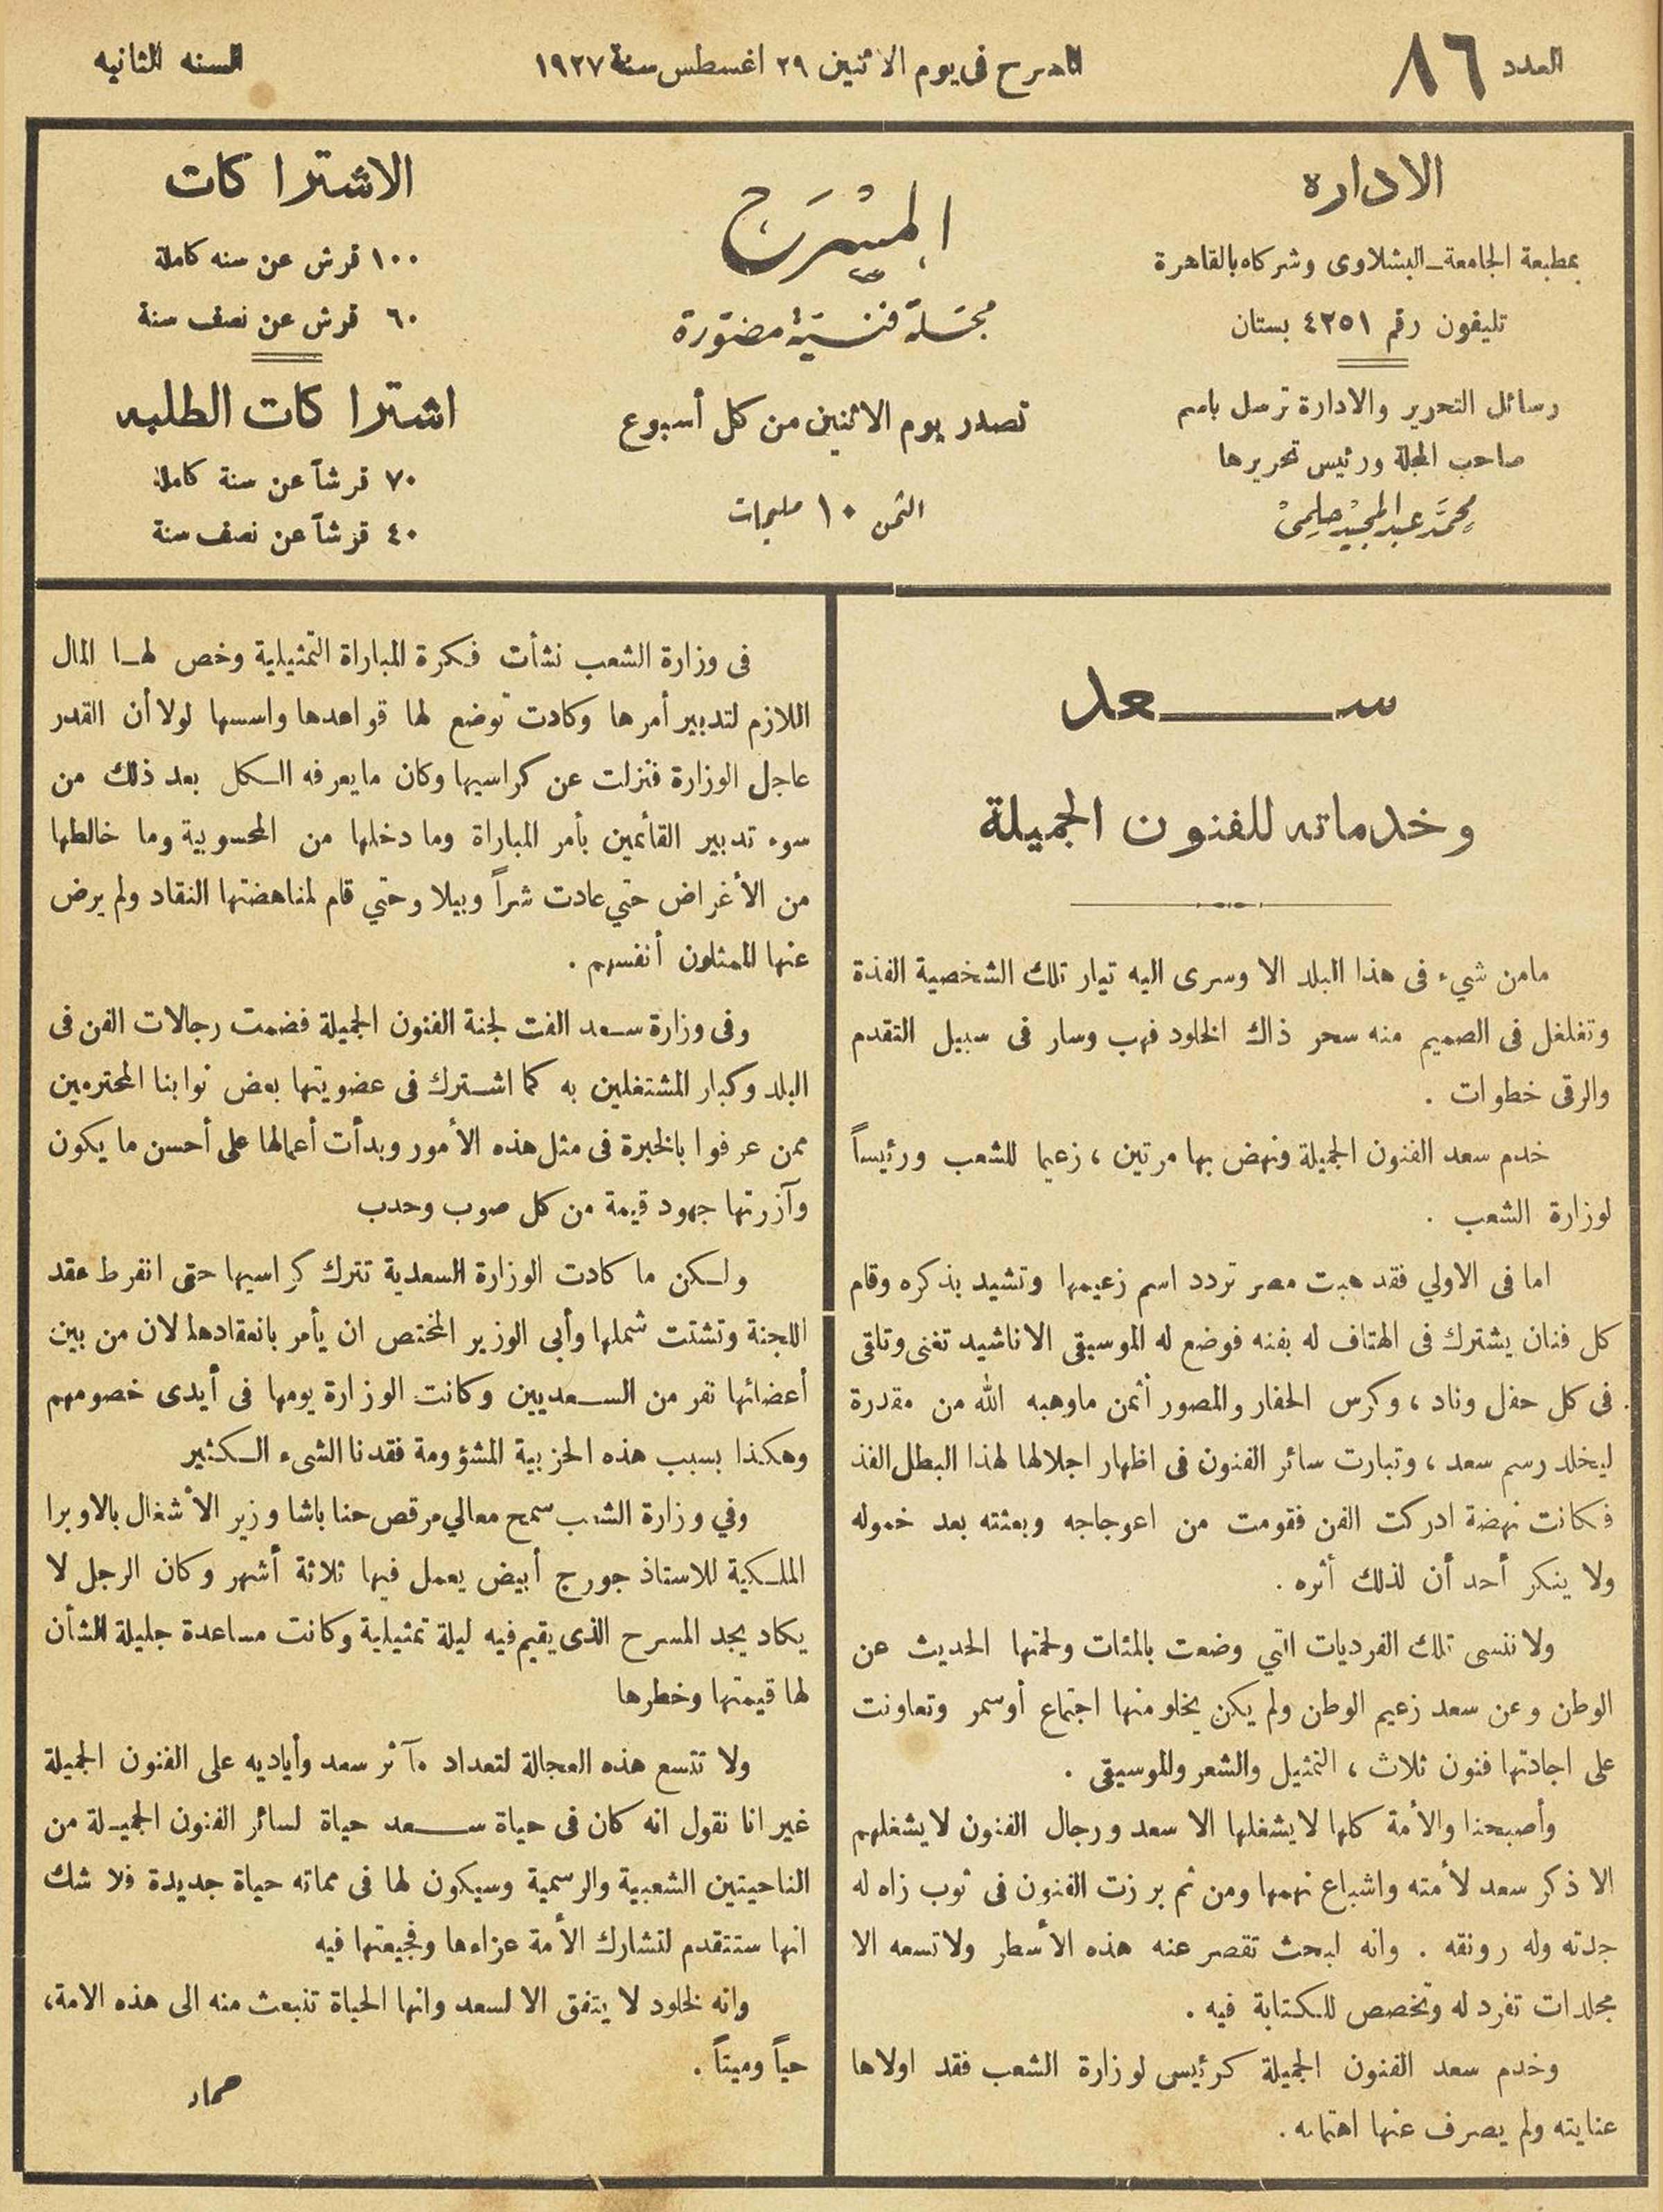 العدد ٨٦
المسرح فى يوم الاثنين ٢٩ اغسطس سنة ١٩٢٧
السنه الثانيه
الاداره
بمطبعة الجامعة ـ البشلاوى وشركاه بالقاهرة
تليفون رقم ٤٢٥١ بستان
رسائل التحرير والادارة ترسل باسم
صاحب المجلة ورئيس تحريرها
محمد عبد المجيد حلمى
المسرح
مجلة فنية مصورة
تصدر يوم الاثنين من كل أسبوع
الثمن ١٠ مليمات
الاشتراكات
١٠٠ قرش عن سنه كاملة
٦٠ قرش عن نصف سنة
اشتراكات الطلبه
٧٠ قرشاً عن سنة كاملة
٤٠ قرشاً عن نصف سنة
سعد
وخدماته للفنون الجميلة
مامن شيء فى هذا البلد الا وسرى اليه تيار تلك الشخصية الفذة
وتغلغل فى الصميم منه سحر ذاك الخلود فهب وسار فى سبيل التقدم
والرقى خطوات .
خدم سعد الفنون الجميلة ونهض بها مرتين ، زعيما للشعب ورئيساً
لوزارة الشعب .
اما فى الاولي فقد هبت مصر تردد اسم زعيمها وتشيد بذكره وقام
كل فنان يشترك فى الهتاف له بفنه فوضع له الموسيقى الاناشيد تغنى وتلقى
فى كل حفل وناد ، وكرس الحفار والمصور أثمن ماوهبه الله من مقدرة
ليخلد رسم سعد ، وتبارت سائر الفنون فى اظهار اجلالها لهذا البطل الفذ
فكانت نهضة ادركت الفن فقومت من اعوجاجه وبعثته بعد خموله
ولا ينكر أحد أن لذلك أثره .
ولا ننسى تلك الفرديات التي وضعت بالمئات ولحمتها الحديث عن
الوطن وعن سعد زعيم الوطن ولم يكن يخلو منها اجتماع أو سمر وتعاونت
على اجادتها فنون ثلاث ، التمثيل والشعر والموسيقى .
وأصبحنا والأمة كلها لا يشغلها الا سعد ورجال الفنون لا يشغلهم
الا ذكر سعد لأمته واشباع نهمها ومن ثم برزت الفنون فى ثوب زاه له
جدته وله رونقه . وانه لبحث تقصر عنه هذه الأسطر ولا تسعه الا
مجلدات تفرد له وتخصص للكتابة فيه .
وخدم سعد الفنون الجميلة كرئيس لوزارة الشعب فقد اولاها
عنايته ولم يصرف عنها اهتمامه .
فى وزارة الشعب نشأت فكرة المباراة التمثيلية وخص لها المال
اللازم لتدبير أمرها وكادت توضع لها قواعدها واسسها لولا أن القدر
عاجل الوزارة فنزلت عن كراسيها وكان مايعرفه الكل بعد ذلك من
سوء تدبير القائمين بأمر المباراة وما دخلها من المحسوبية وما خالطها
من الأغراض حتي عادت شراً وبيلا وحتي قام لمناهضتها النقاد ولم يرض
عنها الممثلون أنفسهم .
وفى وزارة سعد الفت لجنة الفنون الجميلة فضمت رجالات الفن فى
البلد وكبار المشتغلين به كما اشترك فى عضويتها بعض نوابنا المحترمين
ممن عرفوا بالخبرة فى مثل هذه الأمور وبدأت أعمالها على أحسن ما يكون
وآزرتها جهود قيمة من كل صوب وحدب
ولكن ما كادت الوزارة السعدية تترك كراسيها حتى انفرط عقد
اللجنة وتشتت شملها وأبى الوزير المختص ان يأمر بانعقادها لان من بين
أعضائها نفر من السعديين وكانت الوزارة يومها فى أيدى خصومهم
وهكذا بسبب هذه الحزبية المشؤومة فقدنا الشىء الكثير
وفي وزارة الشعب سمح معالي مرقص حنا باشا وزير الأشغال بالاوبرا
الملكية للاستاذ جورج أبيض يعمل فيها ثلاثة أشهر وكان الرجل لا
يكاد يجد المسرح الذى يقيم فيه ليلة تمثيلية وكانت مساعدة جليلة الشأن
لها قيمتها وخطرها
ولا تتسع هذه العجالة لتعداد مآثر سعد وأياديه على الفنون الجميلة
غير انا نقول انه كان فى حياة سعد حياة لسائر الفنون الجميلة من
الناحيتين الشعبية والرسمية وسيكون لها فى مماته حياة جديدة فلا شك
انها ستتقدم لتشارك الأمة عزاءها وفجيعتها فيه
وانه لخلود لا يتفق الا لسعد وانها الحياة تنبعث منه الى هذه الامة،
حياً وميتاً .
حماد